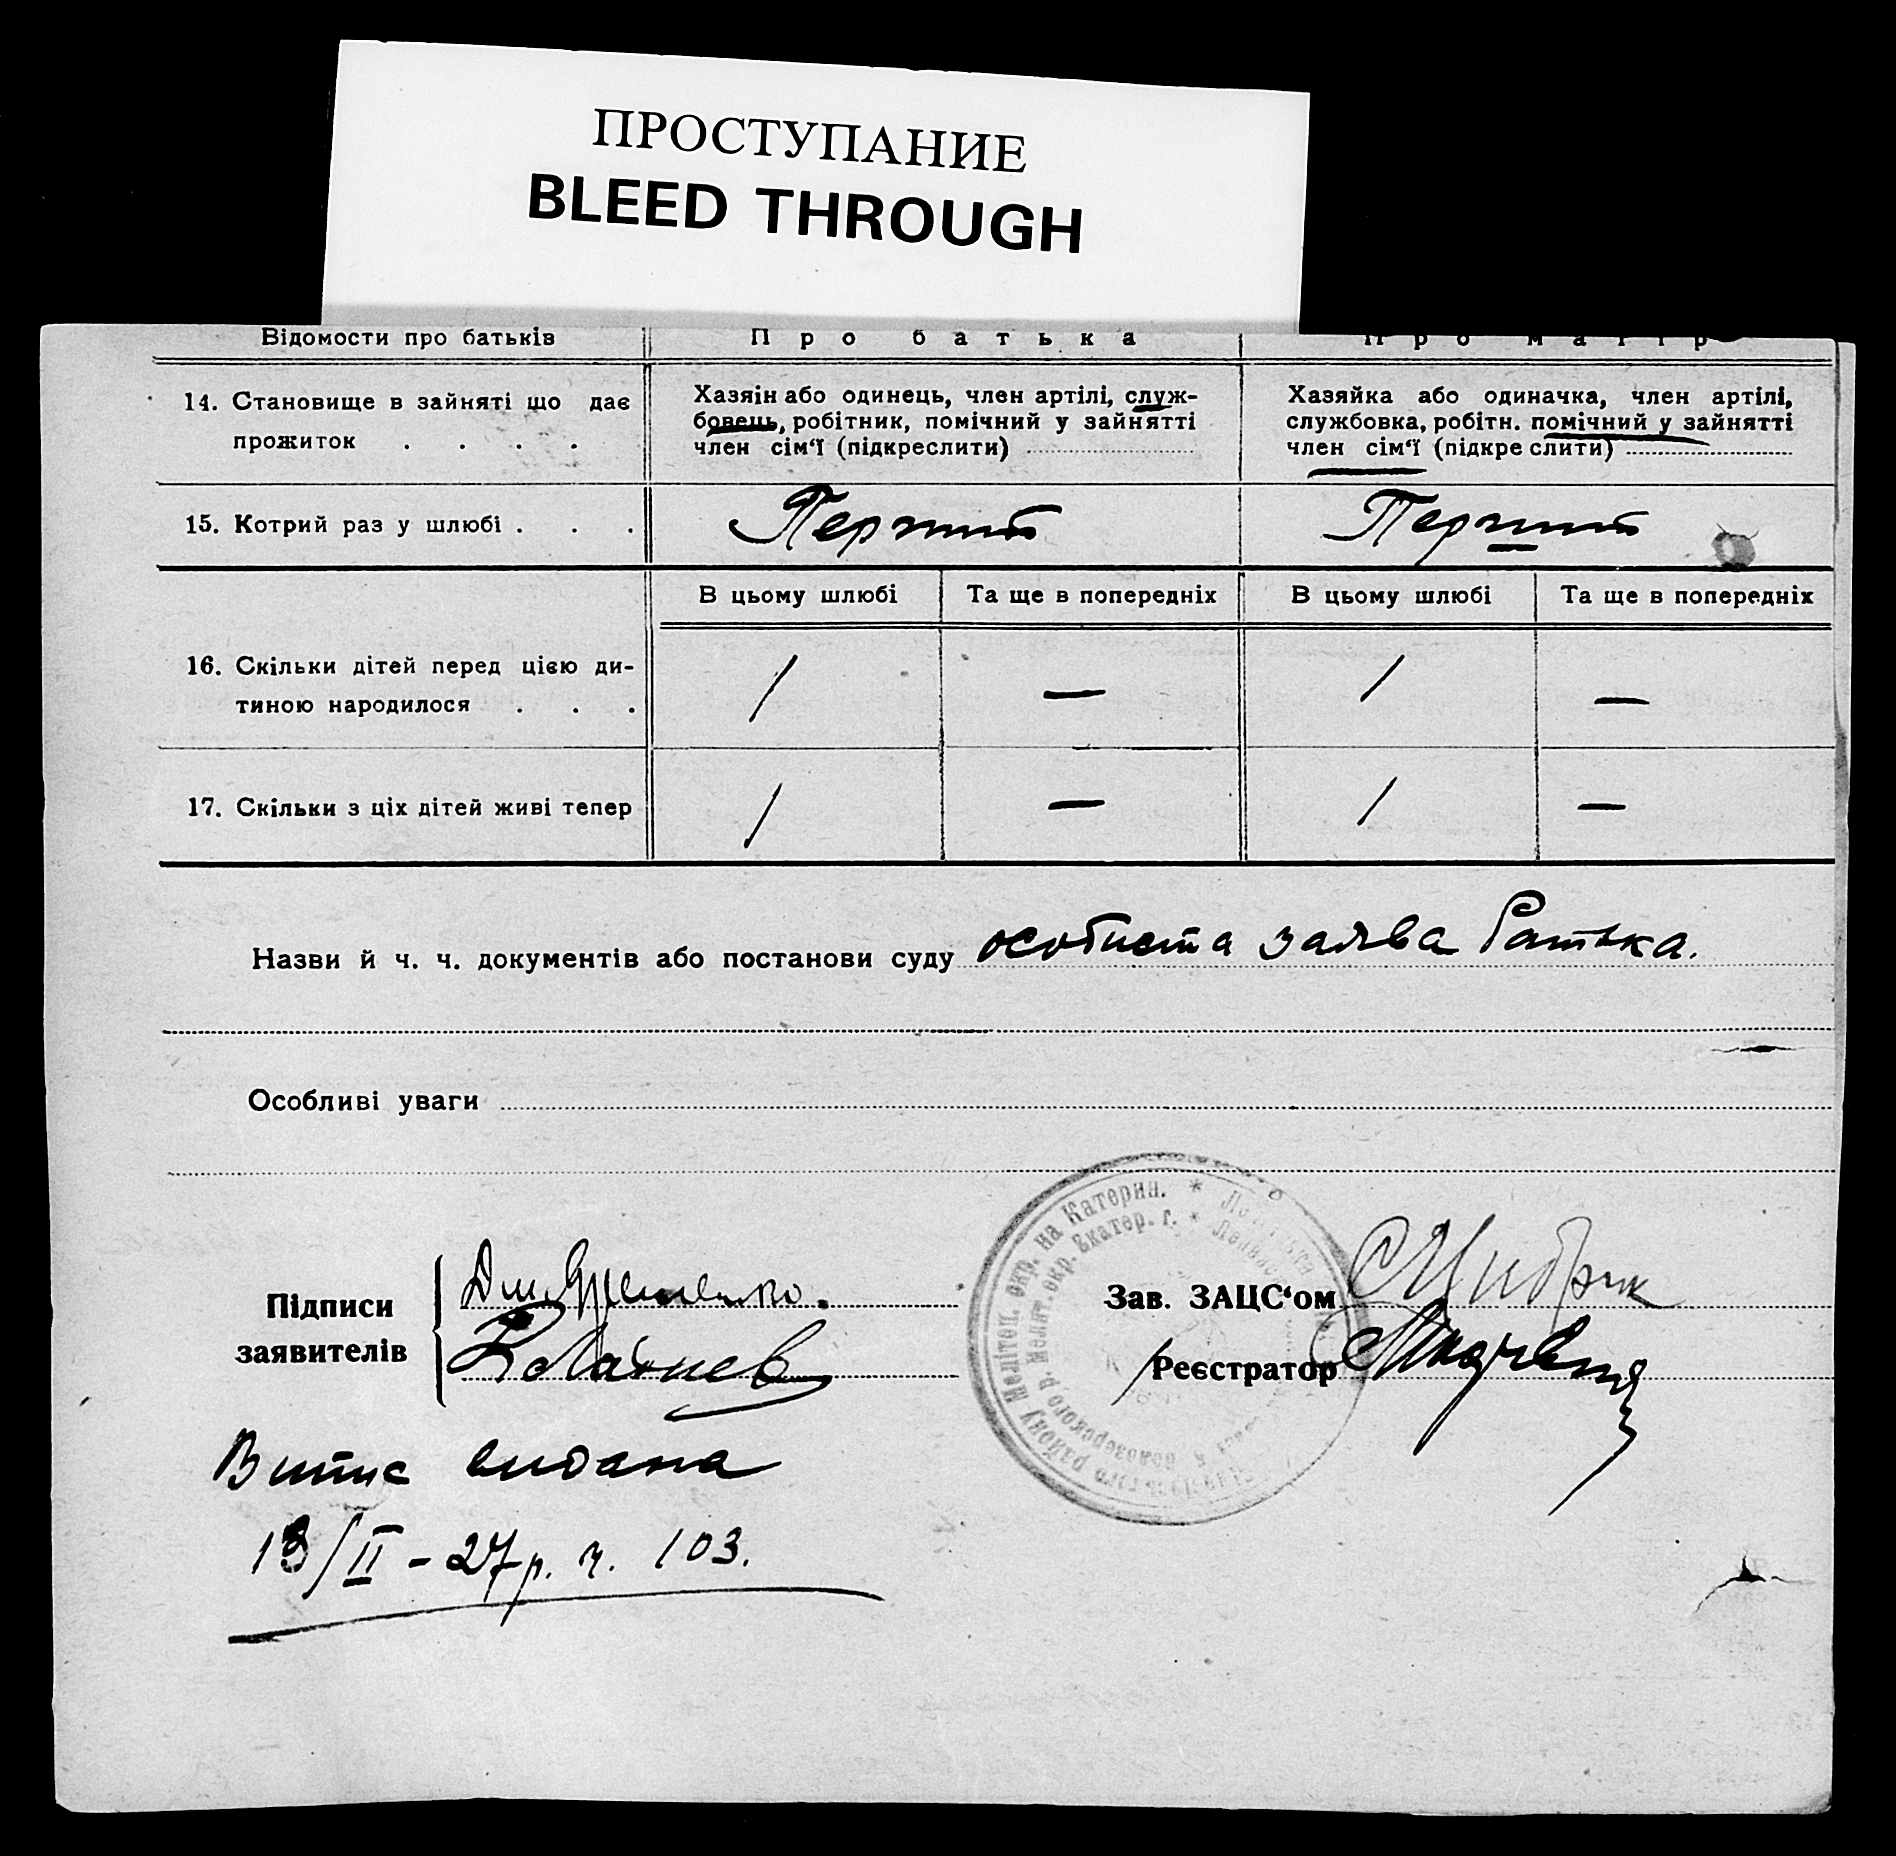 ПРОСТУПАНИЕ
BLEED THROUGH
Відомости про батьків
Про батька
Про матір
14. Становище в зайняті що дає
прожиток . . . .
Хазяін або одинець, член артілі, служ-
бовець, робітник, помічний у зайнятті
член сім‘ї (підкреслити)
Хазяйка або одиначка, член артілі,
службовка, робітн. помічний у зайнятті
член сім‘ї (підкреслити)
15. Котрий раз у шлюбі . . .
Перший
Перший
В цьому шлюбі
Та ще в попередніх
В цьому шлюбі
Та ще в попередніх
16. Скільки дітей перед цією ди-
тиною народилося . . .
1
—
1
—
17. Скільки з ціх дітей живі тепер
1
—
1
—
Назви й ч. ч. документів або постанови суду особиста заява батька.
Особливі уваги
Підписи
заявителів
Зав. ЗАЦС‘ом
Реєстратор
району Меліт. окр. на Катерин. *
р. Мелит. окр. Екатер. г. *
Витис видана
13/II - 27 р. ч. 103.